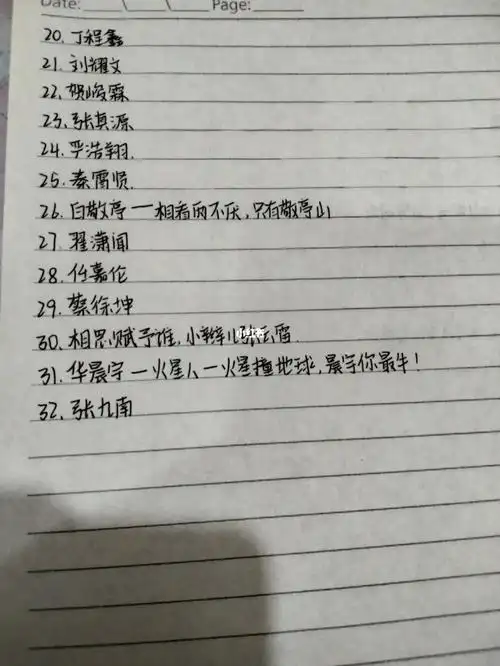 Date: ___\___\___ Page: ______
20. 丁程鑫
21. 刘耀文
22. 贺峻霖
23. 张真源
24. 严浩翔.
25. 秦霄贤
26. 白敬亭一相看两不厌,只有敬亭山
27. 翟潇闻
28. 任嘉伦
29. 蔡徐坤
30. 相思赋予谁,小辫儿张云雷.
31. 华晨宇一火星人一火星撞地球,晨宇你最牛!
32. 张九南